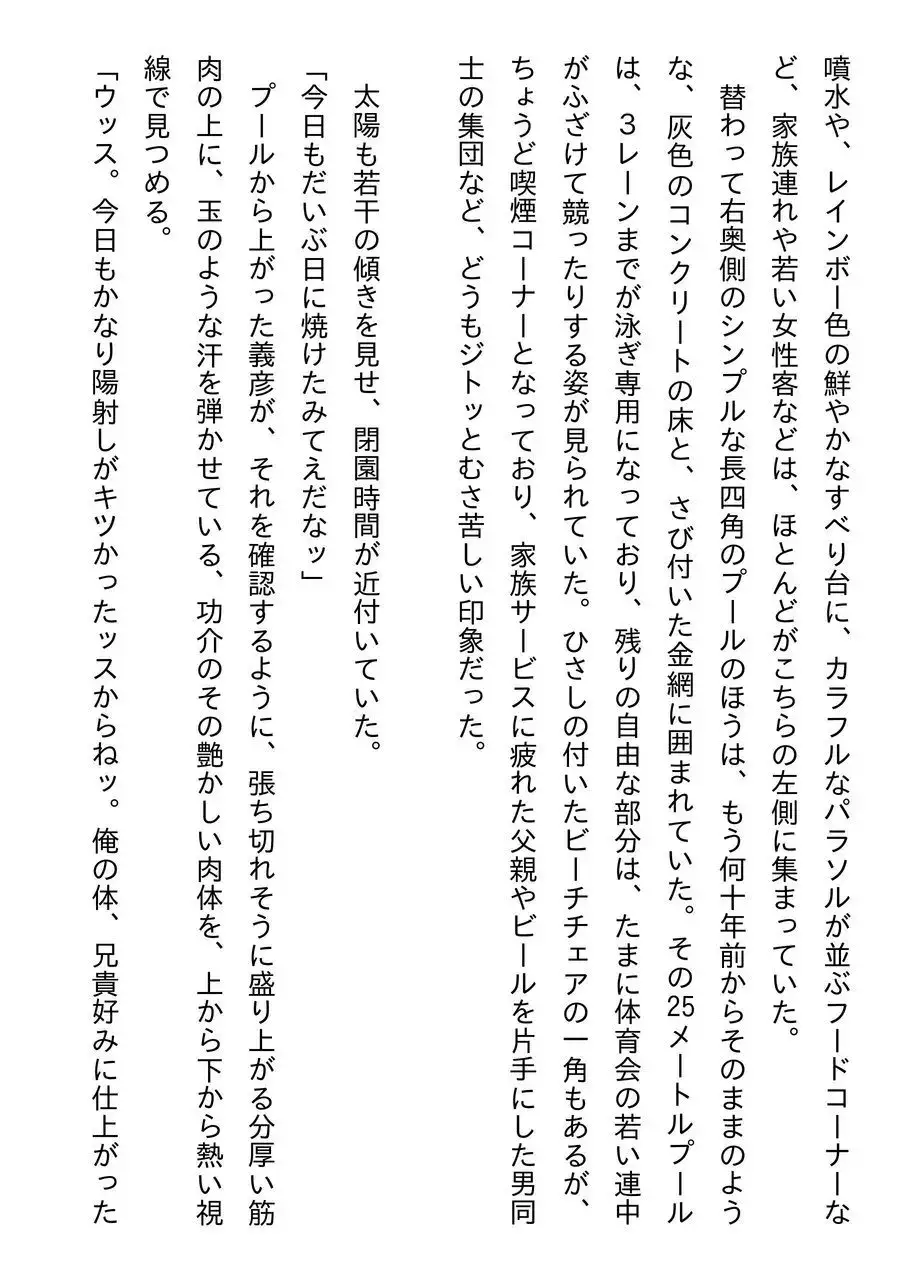 噴水や、レインボー色の鮮やかなすべり台に、カラフルなパラソルが並ぶフードコーナーな
ど、家族連れや若い女性客などは、ほとんどがこちらの左側に集まっていた。
　替わって右奥側のシンプルな長四角のプールのほうは、もう何十年前からそのままのよう
な、灰色のコンクリートの床と、さび付いた金網に囲まれていた。その25メートルプール
は、３レーンまでが泳ぎ専用になっており、残りの自由な部分は、たまに体育会の若い連中
がふざけて競ったりする姿が見られていた。ひさしの付いたビーチチェアの一角もあるが、
ちょうど喫煙コーナーとなっており、家族サービスに疲れた父親やビールを片手にした男同
士の集団など、どうもジトッとむさ苦しい印象だった。
　太陽も若干の傾きを見せ、閉園時間が近付いていた。
「今日もだいぶ日に焼けたみてえだなッ」
　プールから上がった義彦が、それを確認するように、張ち切れそうに盛り上がる分厚い筋
肉の上に、玉のような汗を弾かせている、功介のその艶かしい肉体を、上から下から熱い視
線で見つめる。
「ウッス。今日もかなり陽射しがキツかったッスからねッ。俺の体、兄貴好みに仕上がった